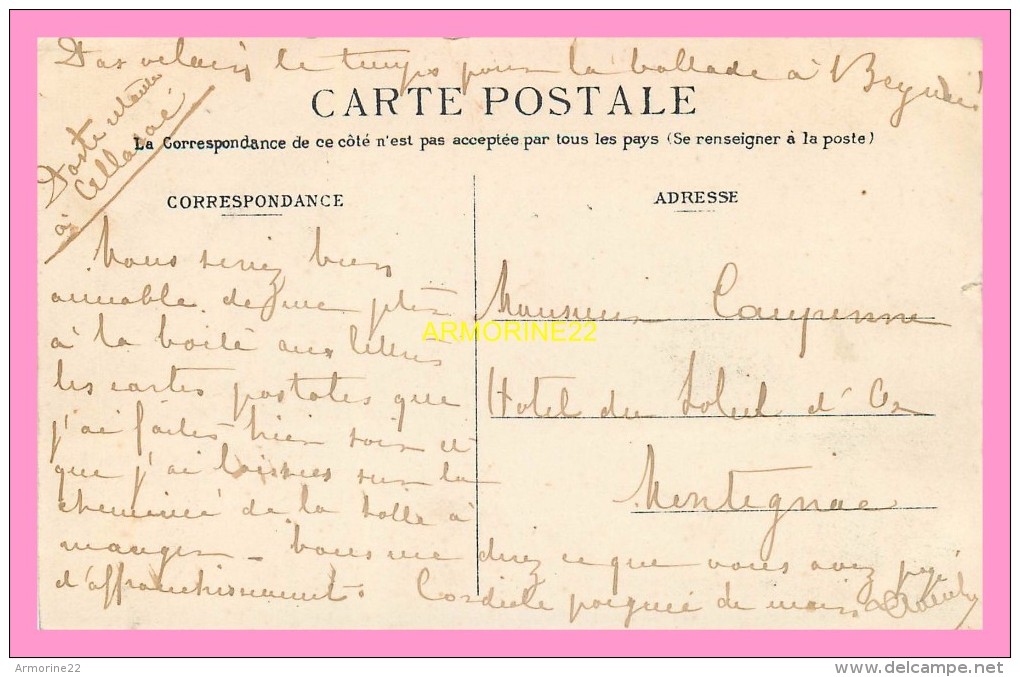 le temps pour la ballade à
CARTE POSTALE
La Correspondance de ce côté n'est pas acceptée par tous les pays (Se renseigner à la poste)
Poste
à
CORRESPONDANCE
ADRESSE
Vous seriez bien
aimable de me
à la boite aux lettres
les cartes postales que
j'ai faites hier soir et
que j'ai laissées sur la
cheminée de la salle à
manger – Vous me direz ce que vous avez payé
d'affranchissement. Cordiale poignée de mains
Monsieur
Hotel du Soleil d'Or
Montignac
ARMORINE22
Armorine22
www.delcampe.net